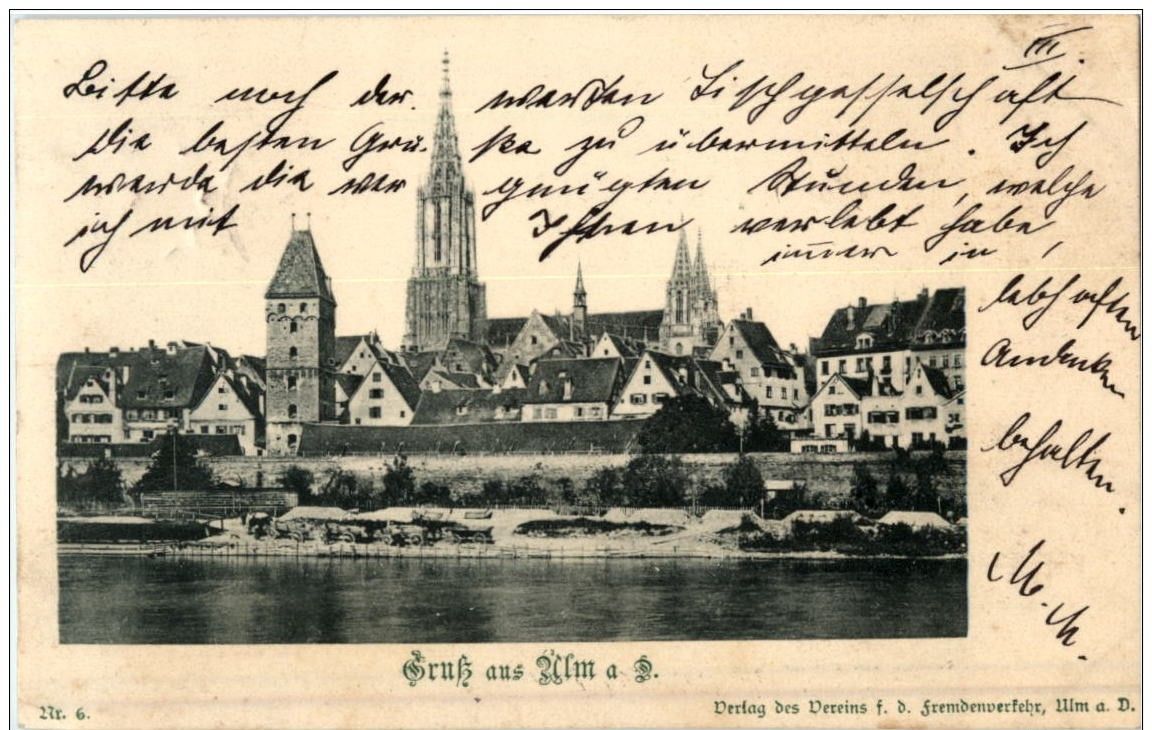 III.
Bitte noch der werten Tischgesselschaft
die besten Grü- ße zu übermitteln. Ich
werde die ver gnügten Stunden, welche
ich mit Ihnen verlebt habe,
immer in
lebhaften
Andenken
behalten.
Gruß aus Ulm a D.
Nr. 6.
Verlag des Vereins f. d. Fremdenverkehr, Ulm a. D.